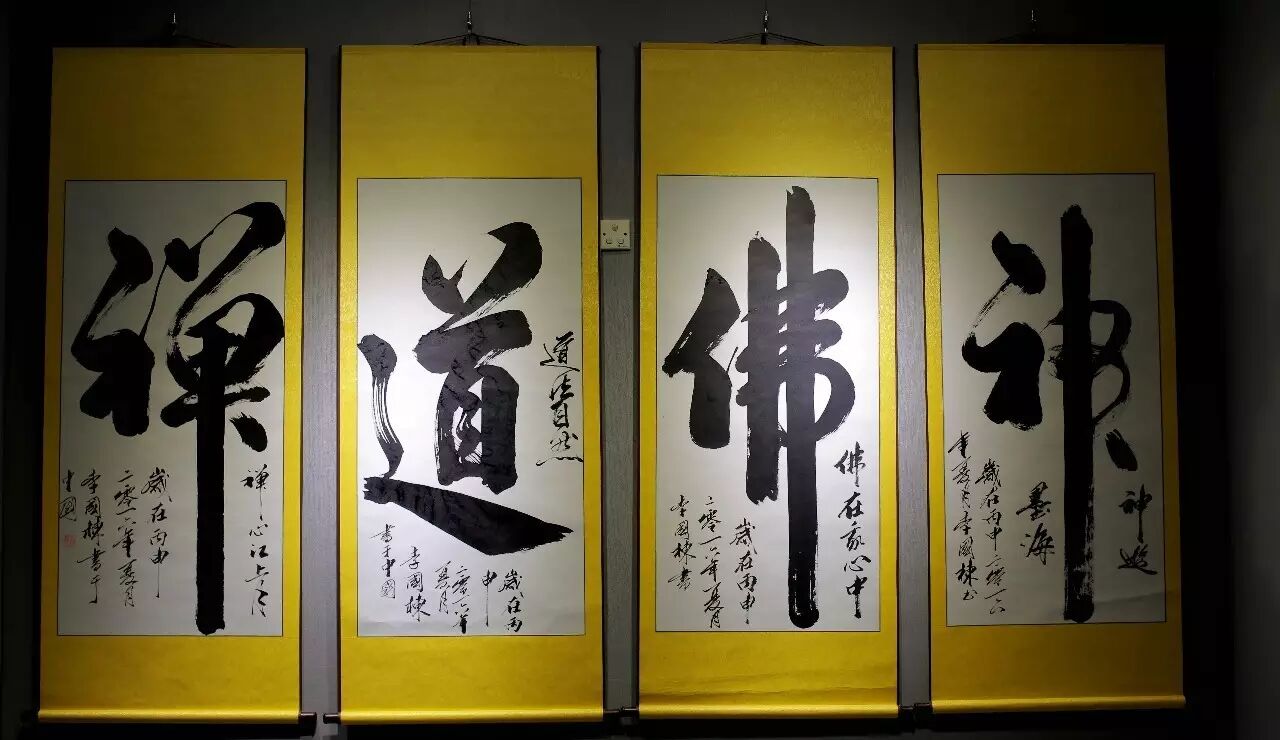 禅
禅心江上月
歲在丙申
二零一六年夏月
李國棟書于
中國
道
道法自然
歲在丙
申
二零一六年
夏月
李國棟
書于中國
佛
佛在我心中
歲在丙申
二零一六年夏月
李國棟書
神
神遊
墨海
歲在丙申二零一六
年夏月李國棟書